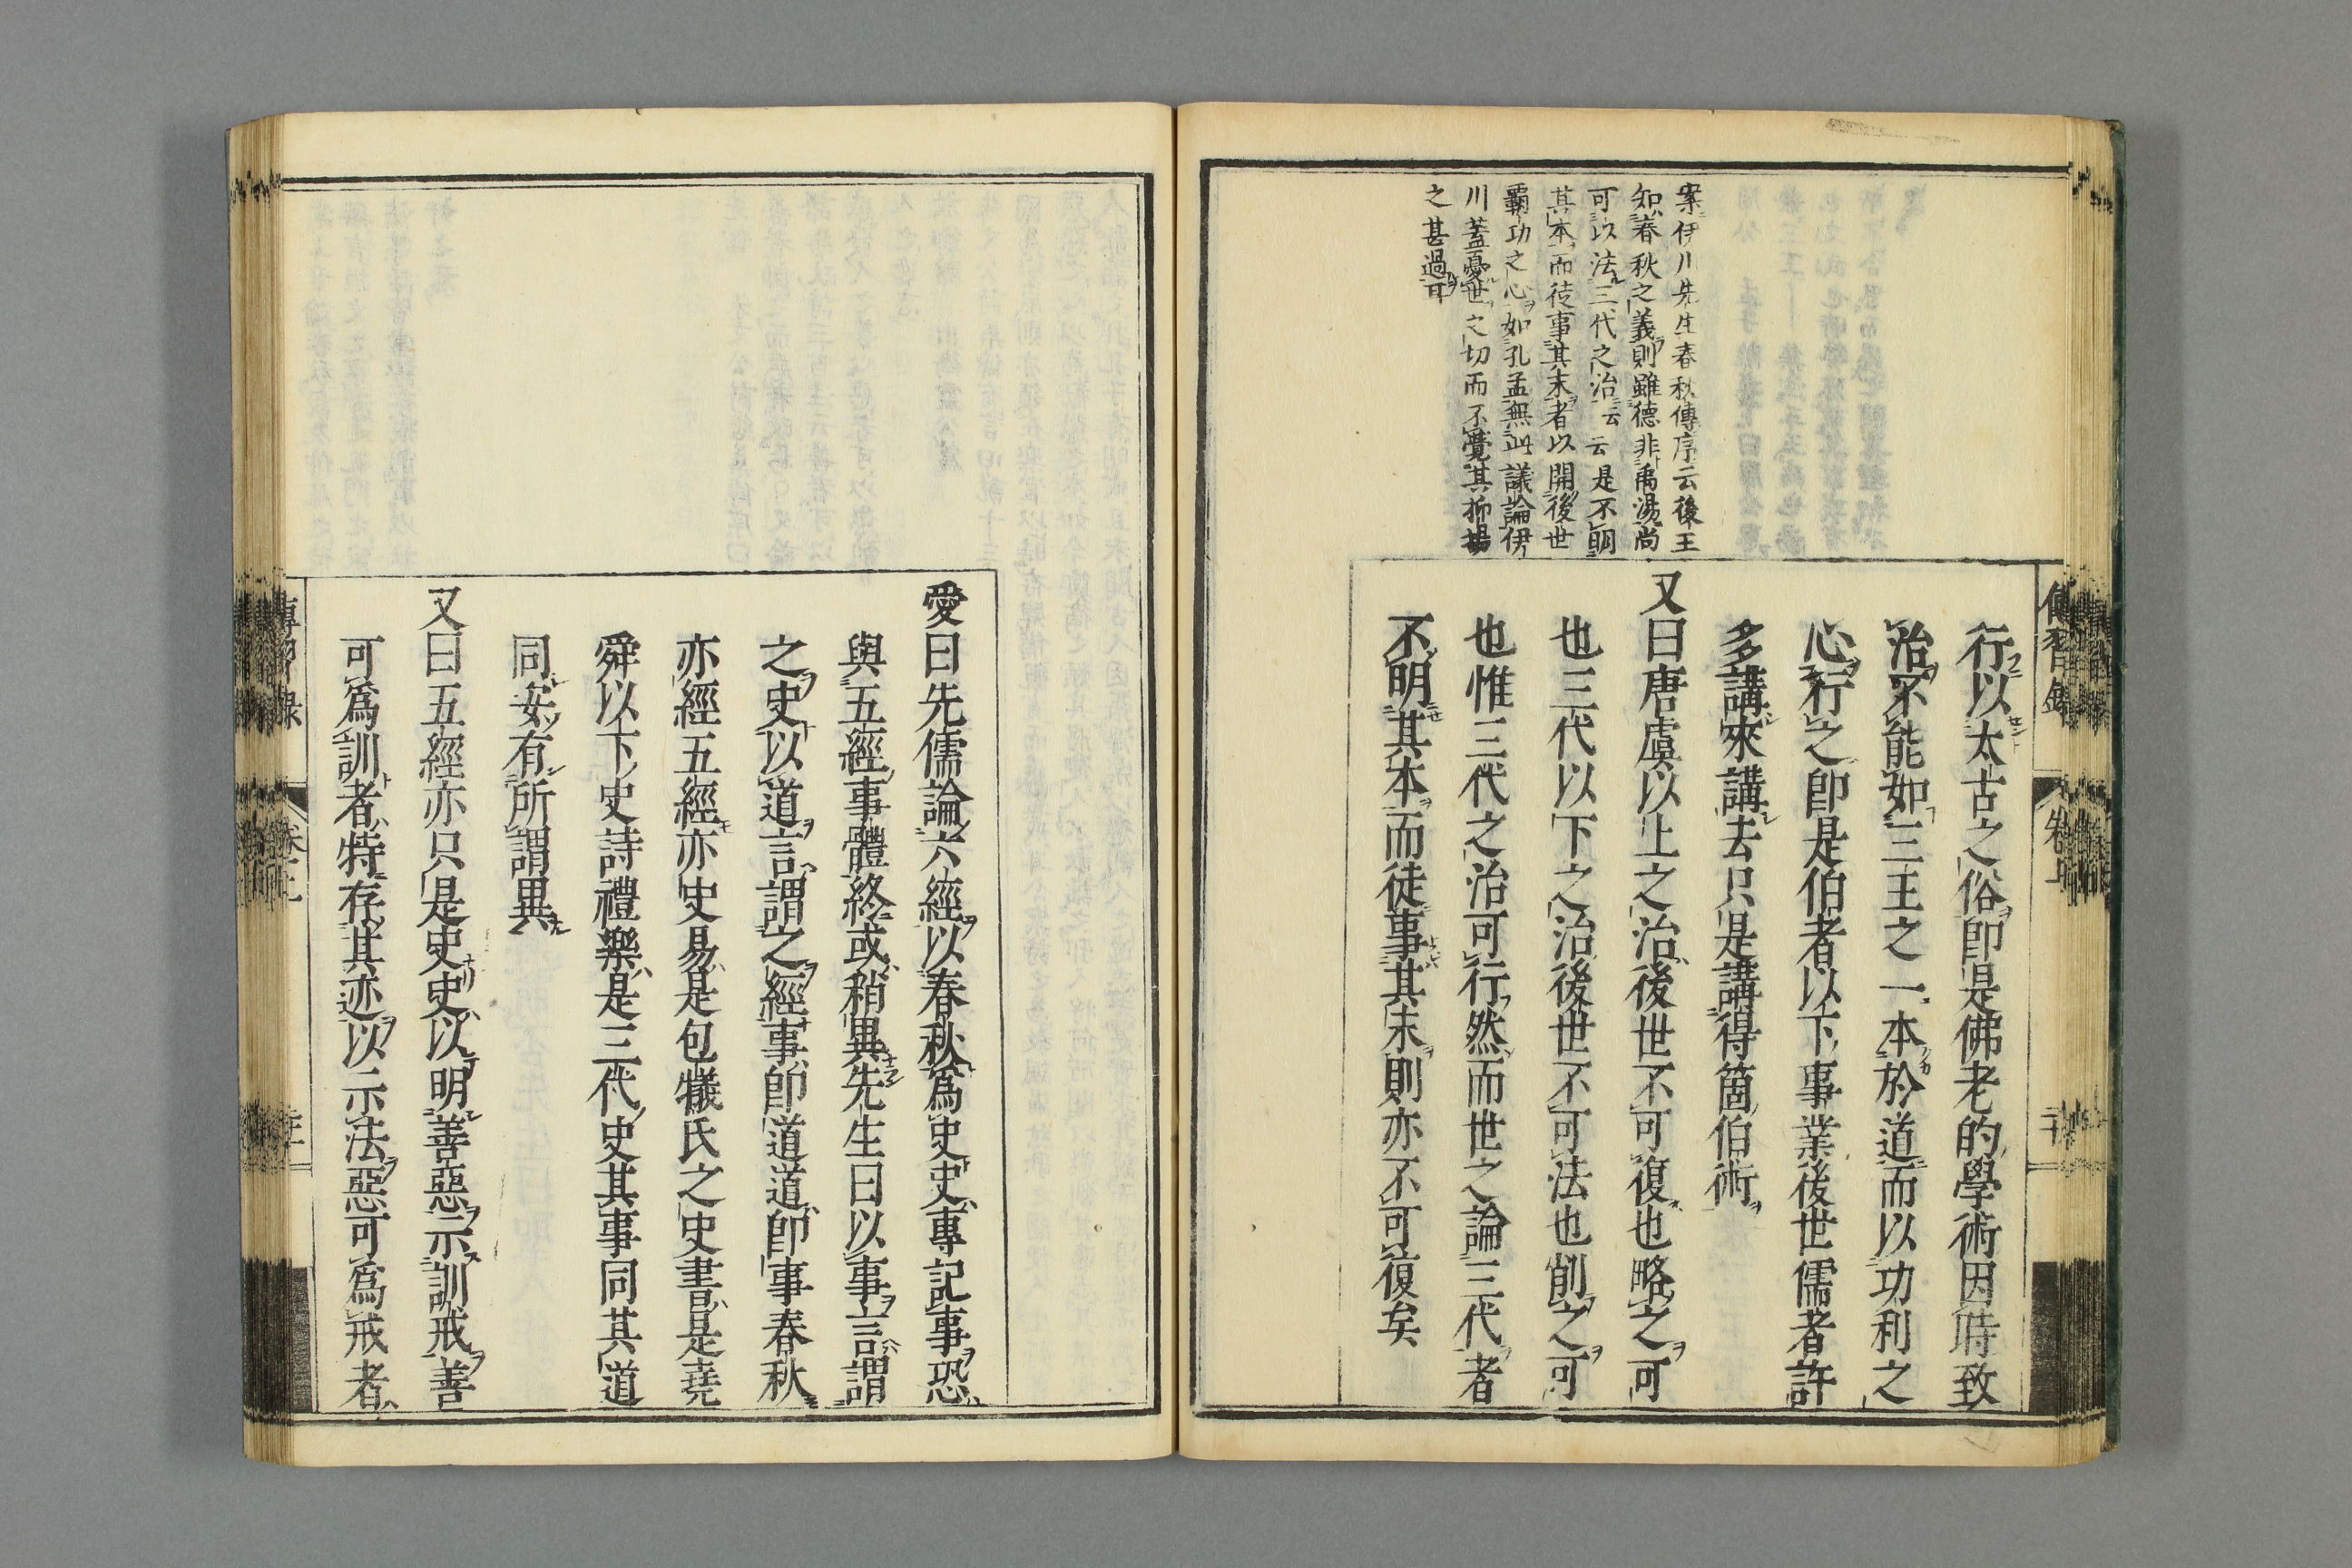 案伊川先生春秋傳序云後王
知春秋之義則雖德非禹湯尚
可以法三代之治云云是不明
其本而徒事其末者以開後世
霸功之心如孔孟無此議論伊
川蓋憂世之切而不覺其抑揚
之甚過耳
傳習錄
卷上
行以太古之俗卽是佛老的學術因時致
治不能如三王之一本於道而以功利之
心行之卽是伯者以下事業後世儒者許
多講來講去只是講得箇伯術
又曰唐虞以上之治後世不可復也略之可
也三代以下之治後世不可法也削之可
也惟三代之治可行然而世之論三代者
不明其本而徒事其末則亦不可復矣
愛曰先儒論六經以春秋爲史史專記事恐
與五經事體終或稍異先生曰以事言謂
之史以道言謂之經事卽道道卽事春秋
亦經五經亦史易是包犧氏之史書是堯
舜以下史詩禮樂是三代史其事同其道
同安有所謂異
又曰五經亦只是史史以明善惡示訓戒善
可爲訓者特存其迹以示法惡可爲戒者